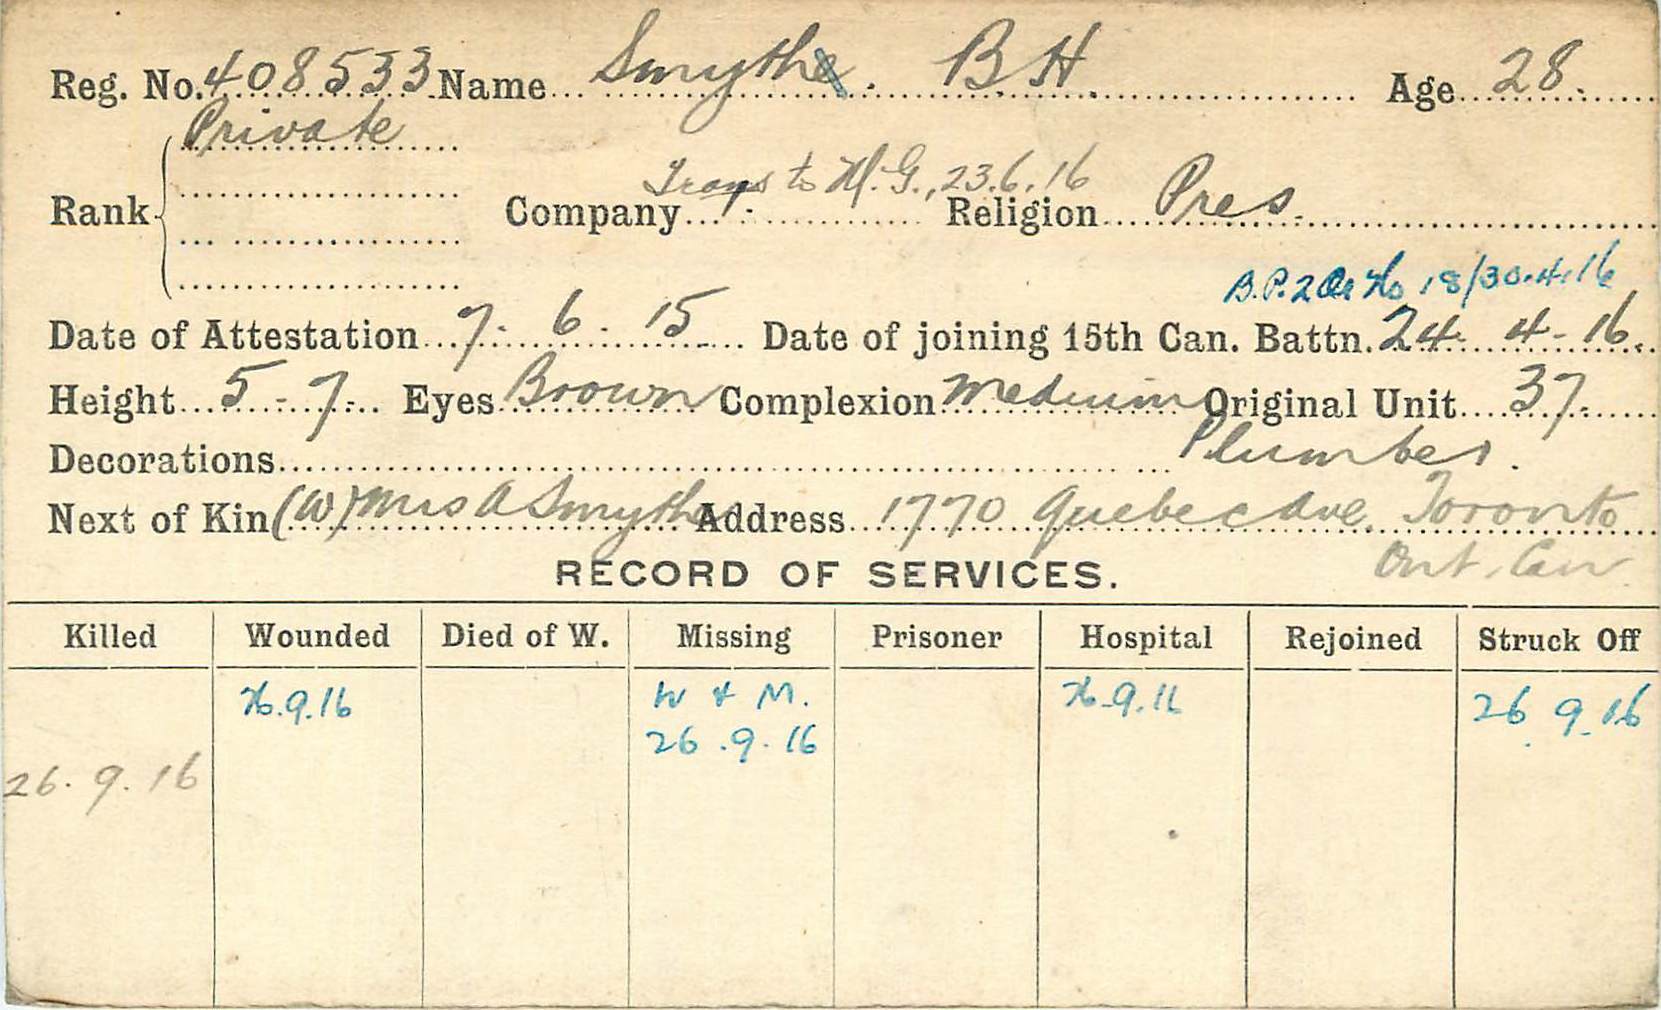 Reg. No. 408533 Name Smythe. B.H. Age 28.
Private
Trans to M.G., 23.6.16
Rank Company Religion Pres.
B.P. 2 18/30.4.16
Date of Attestation 7. 6. 15 Date of joining 15th Can. Battn. 24. 4-16.
Height 5-7. Eyes Brown Complexion Medium Original Unit 37.
Decorations Plumber.
Next of Kin (W) Mrs A Smythe Address 1770 Quebec Ave. Toronto
Ont. Can.
RECORD OF SERVICES.
Killed Wounded Died of W. Missing Prisoner Hospital Rejoined Struck Off
26.9.16 W & M. 26.9.16 26 9.16
26.9.16
26.9.16